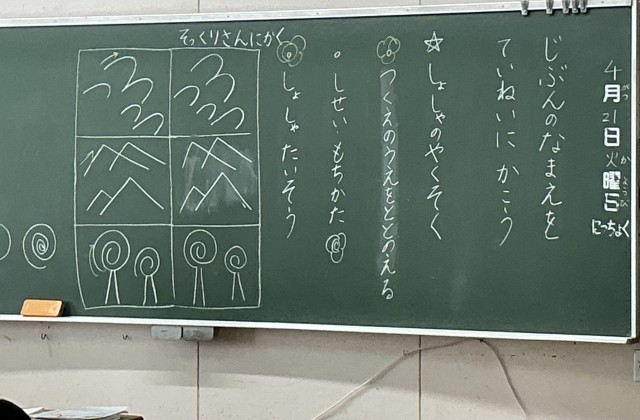 4月21日火曜日
がつ
か
ようび
にっちょく
じぶんのなまえを
ていねいに かこう
☆しょしゃのやくそく
つくえのうえをととのえる
。しせい・もちかた
しょしゃたいそう
そっくりさんにかく